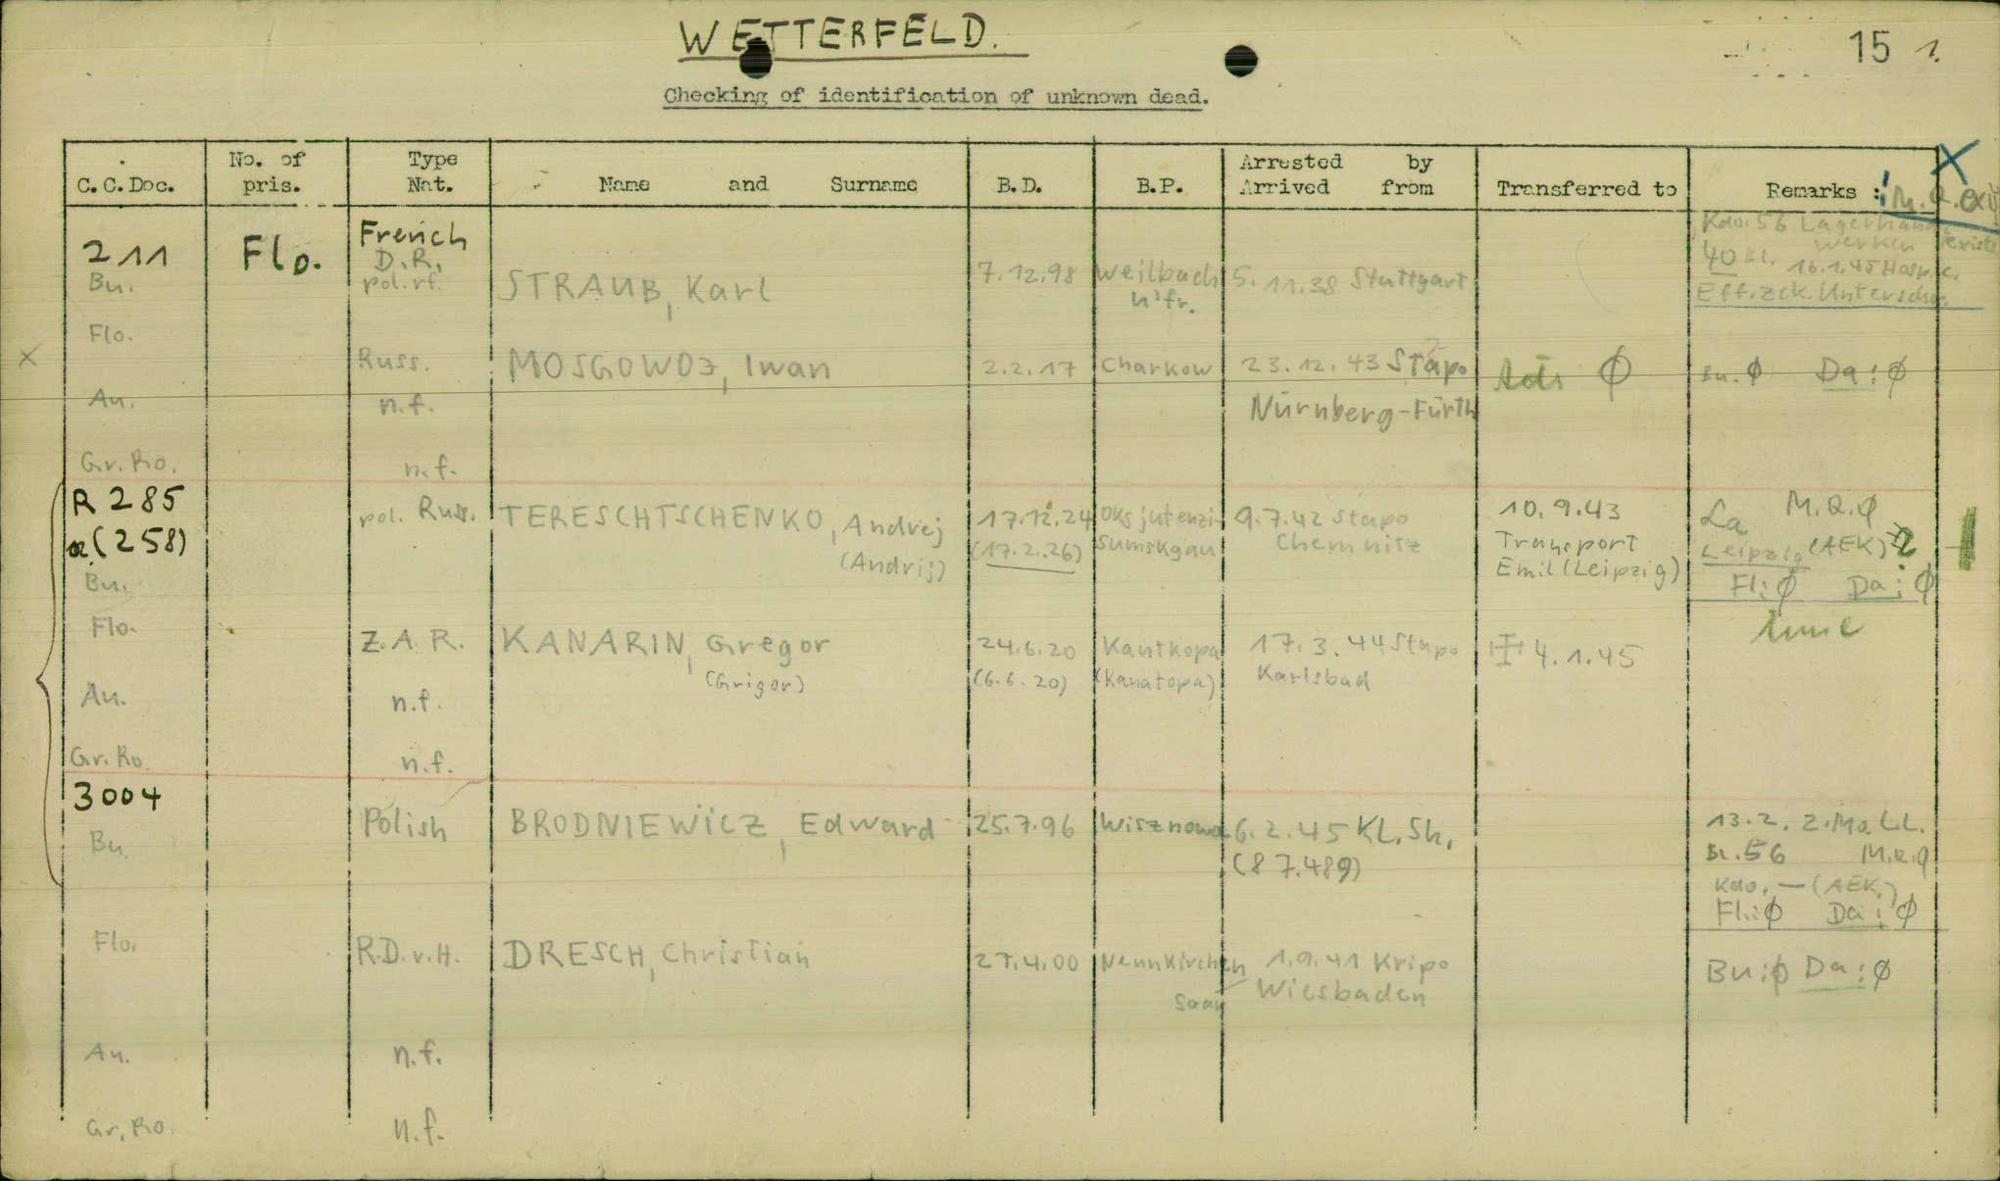 WETTERFELD.
15 1.
Checking of identification of unknown dead.
C.C.Doc.
No. of pris.
Type Nat.
Name and Surname
B.D.
B.P.
Arrested by
Arrived from
Transferred to
Remarks :
211
Bu.
Flo.
French
D.R.
pol. rf.
STRAUB, Karl
7.12.98
Weilbach
U'fr.
5.11.38 Stuttgart
Kdo. 56
Werken
40 Kl. 16.1.45
Eff. zck.
Flo.
Russ.
MOSGOWOJ, Iwan
2.2.17
Charkow
23.12.43 Stapo
Nürnberg-Fürth
Ø
Bu. Ø Da: Ø
An.
n.f.
Gr. Ro.
n.f.
R 285
(258)
Bu.
pol. Russ.
TERESCHTSCHENKO, Andrej
(Andrij)
17.12.24
(17.2.26)
Sumskgau
9.7.42 Stapo
Chemnitz
10.9.43
Transport
Emil (Leipzig)
La M.R.Ø
Leipzig (AEK)
Fl: Ø Da: Ø
Flo.
Z.A.R.
KANARIN, Gregor
(Grigor)
24.6.20
(6.6.20)
Kantkopa
(Kanatopa)
17.3.44 Stapo
Karlsbad
4.1.45
An.
n.f.
Gr. Ro.
n.f.
3004
Bu.
Polish
BRODNIEWICZ, Edward
25.7.96
Wisznowa
6.2.45 KL. Sh.
(87.489)
13.2. Z. Ma L.L.
Bl. 56 M.R.Ø
Kdo. — (AEK)
Fl.: Ø Da: Ø
Flo.
R.D.v.H.
DRESCH, Christian
27.4.00
Neunkirchen
Saar
1.9.41 Kripo
Wiesbaden
Bu: Ø Da: Ø
An.
n.f.
Gr. Ro.
n.f.